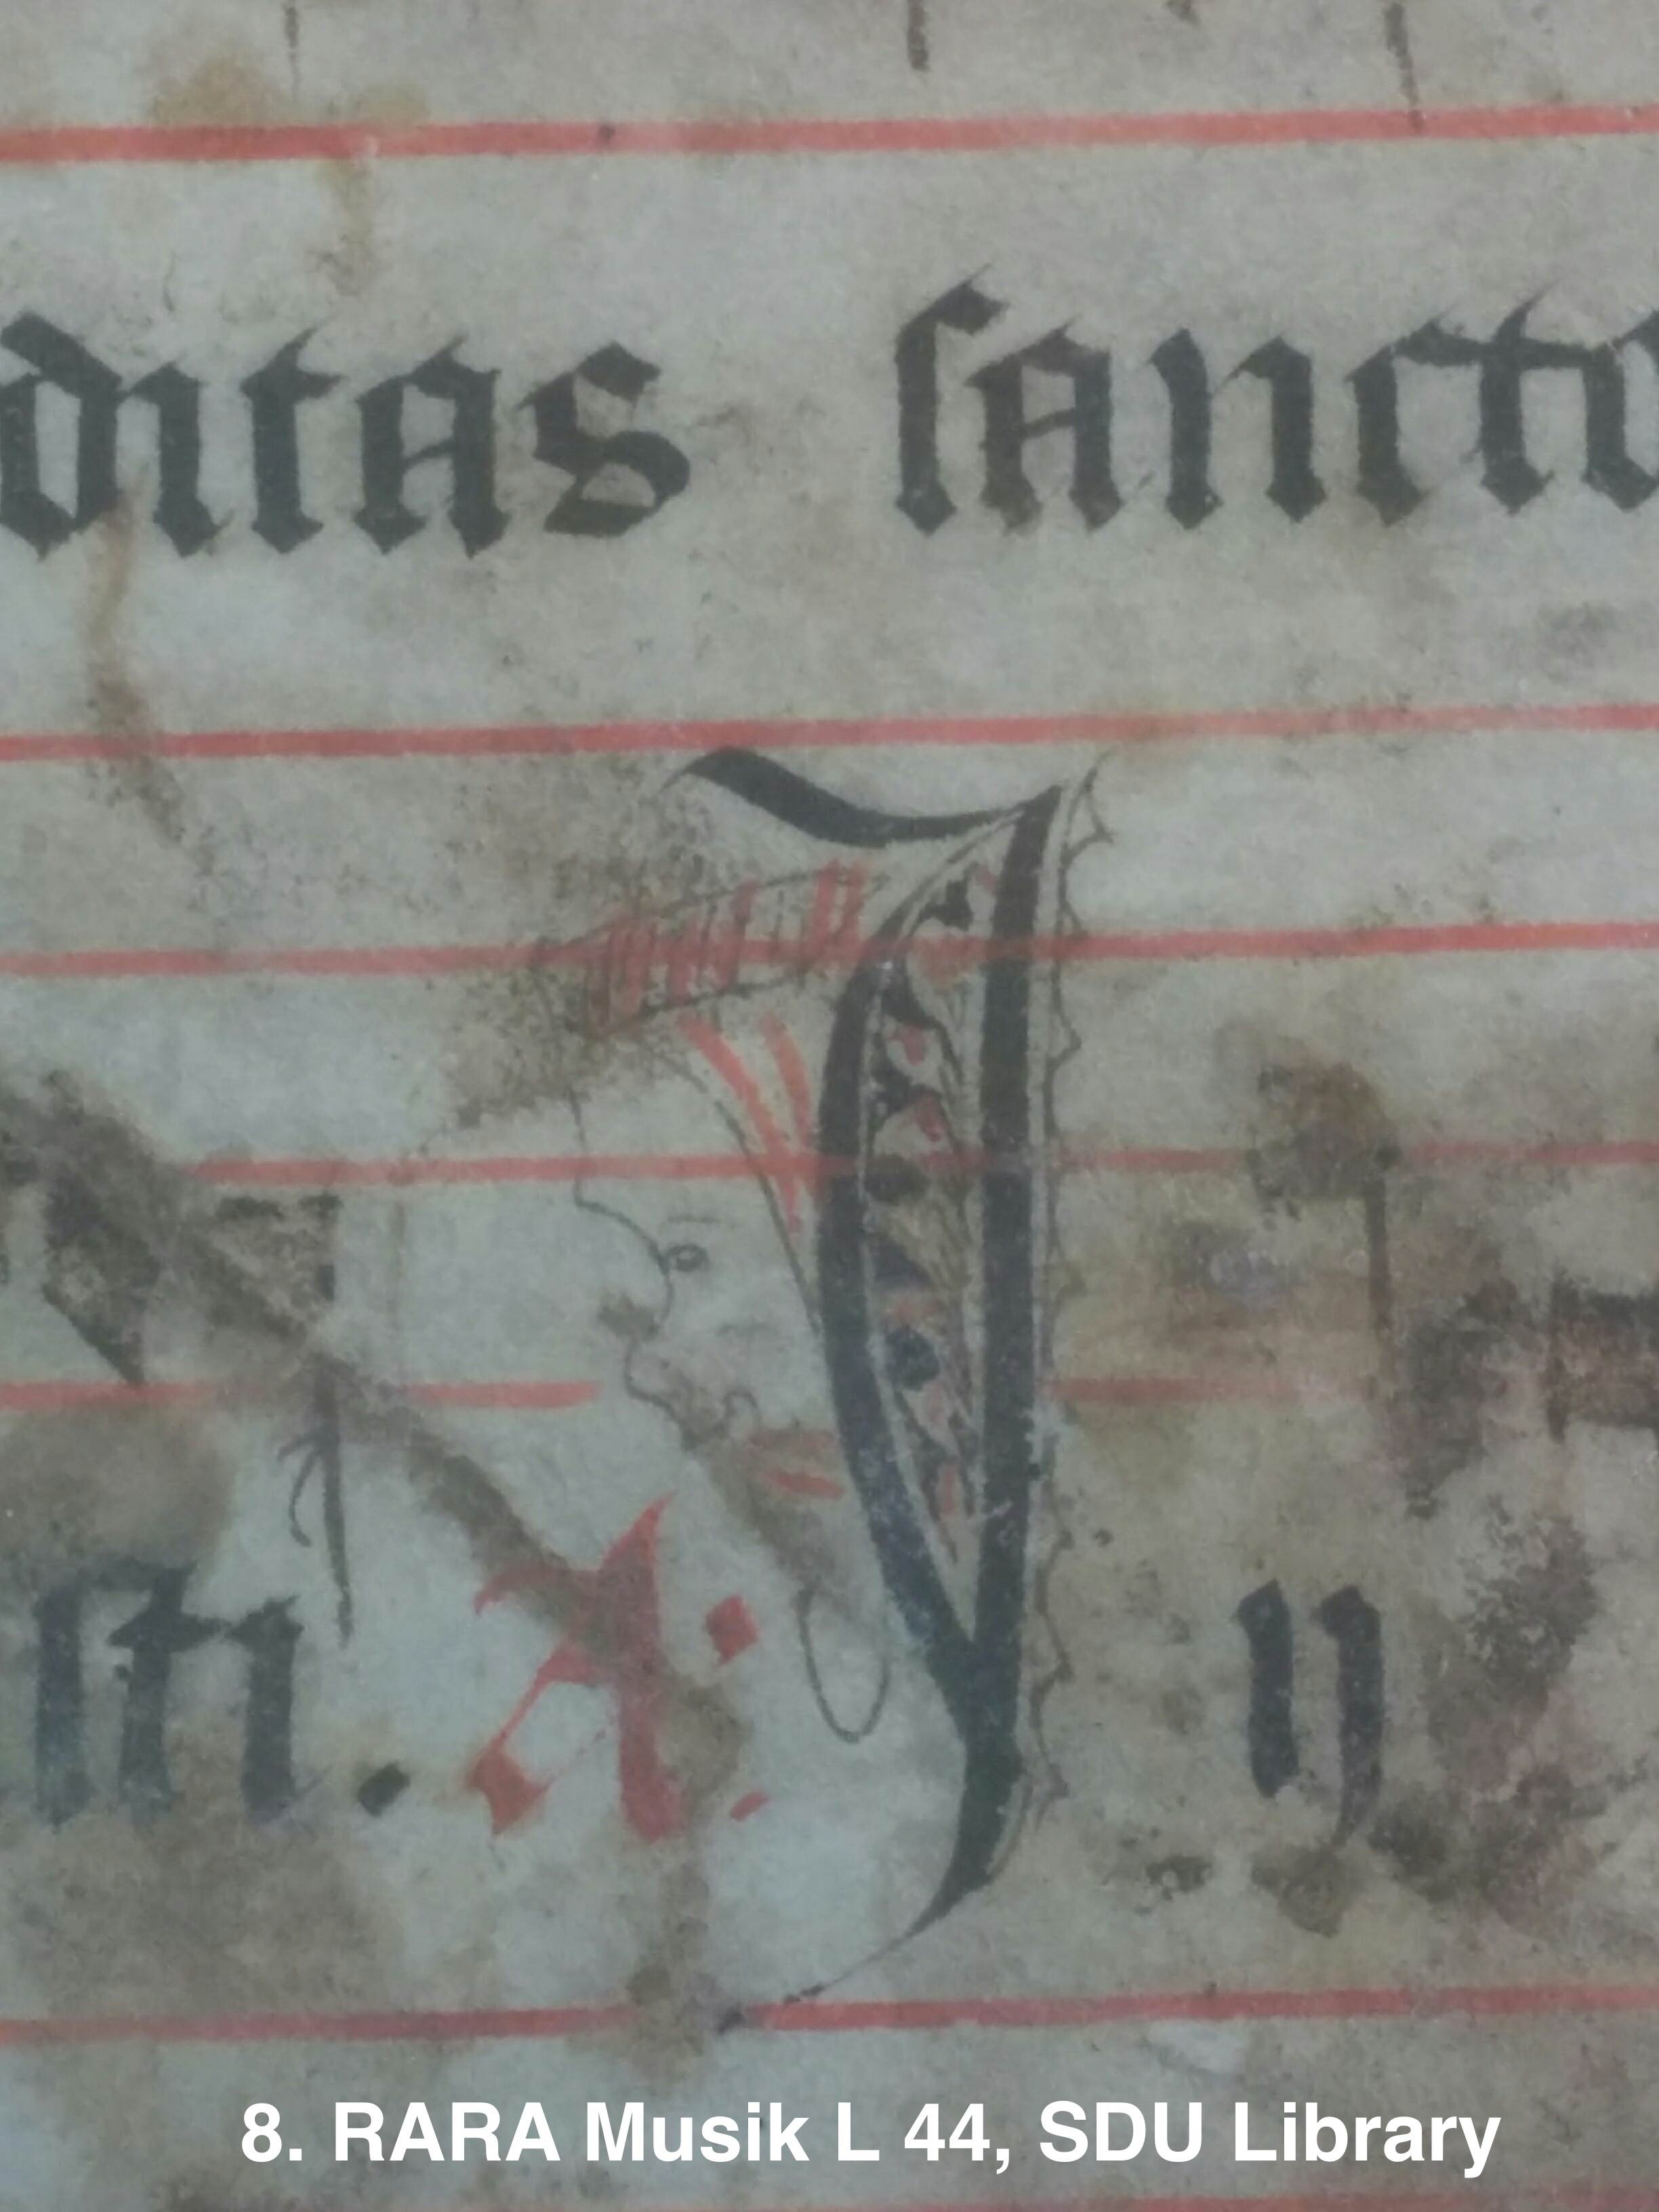 ditas sancto
sti. A: I n
8. RARA Musik L 44, SDU Library